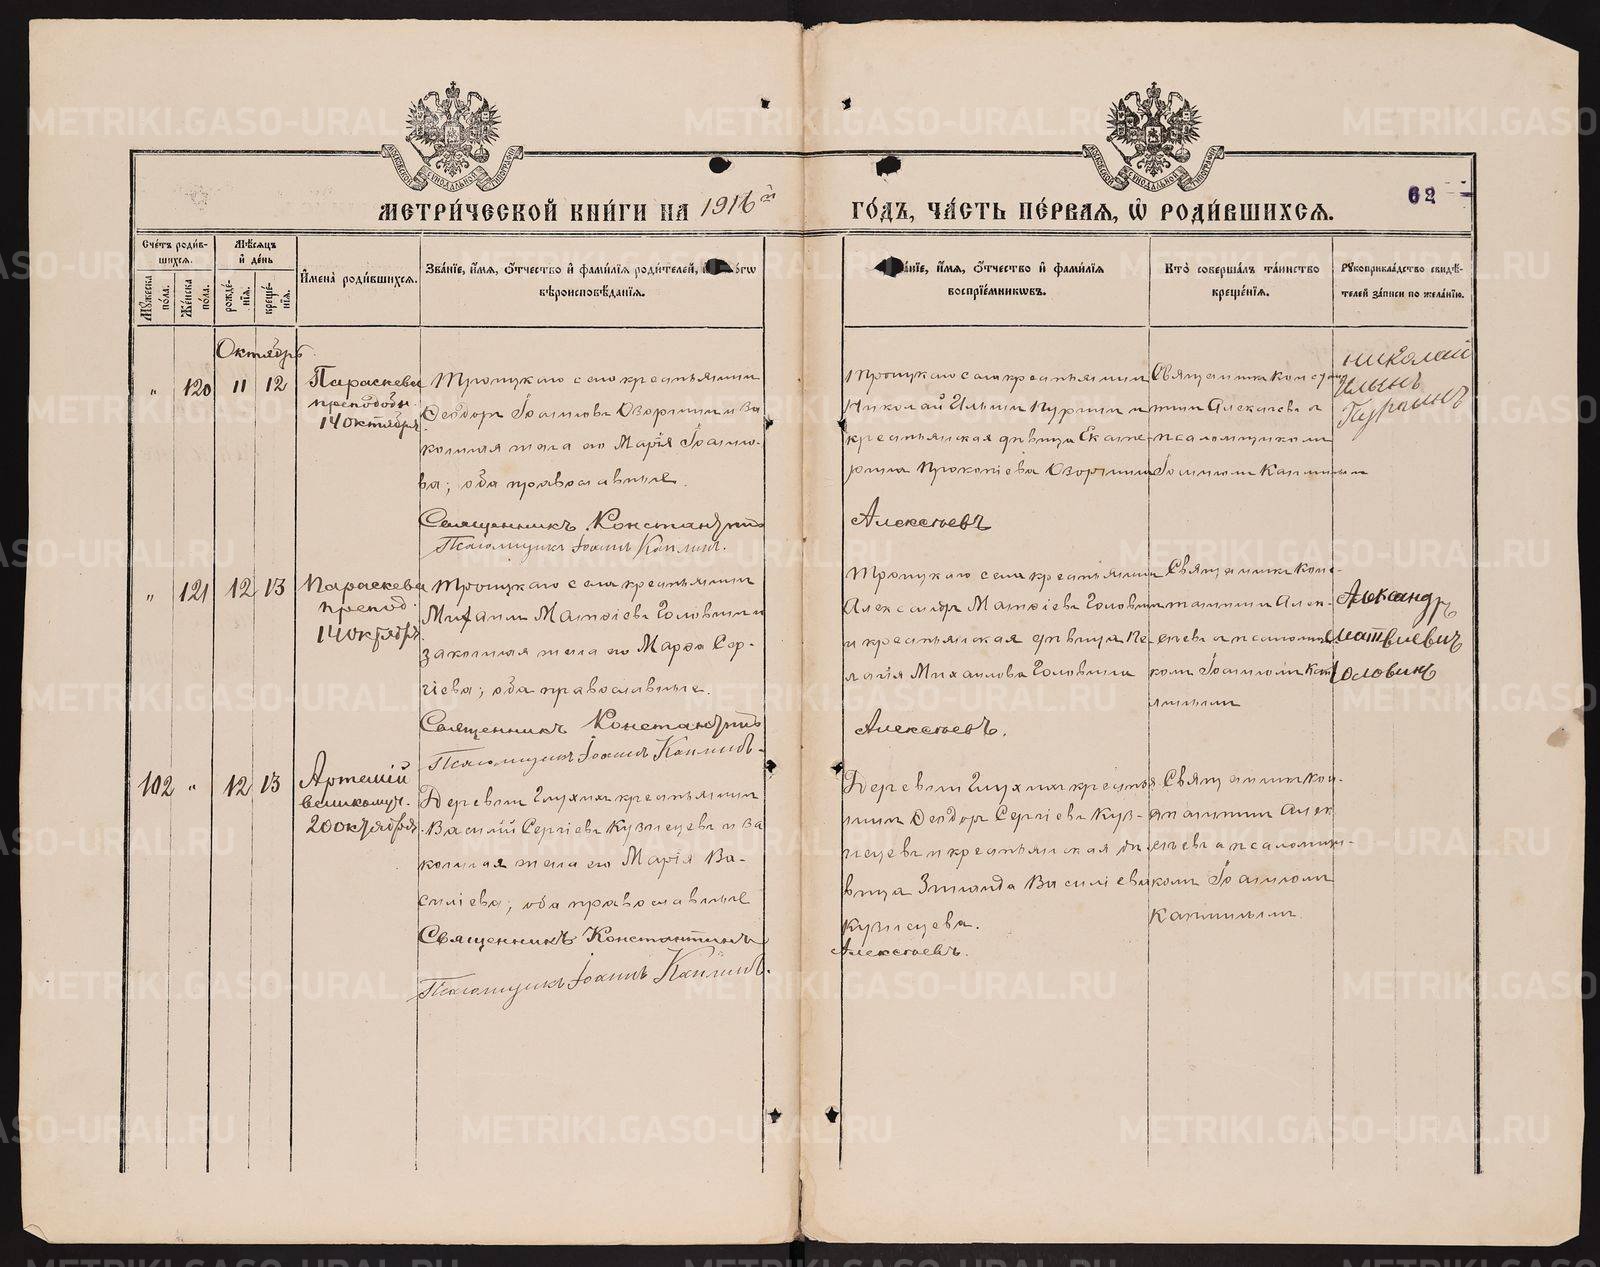 МЕТРИ́ЧЕСКОЙ КНИ́ГИ НА 1916й
ГО́ДЪ, ЧА́СТЬ ПЕ́РВАЯ, Ѡ҆ РОДИ́ВШИХСЯ.
62
Сче́тъ роди́в-
шихся.
Мѣ́сяцъ
и҆ де́нь
Мꙋ́жеска
по́ла.
Же́нска
по́ла.
рожде́-
нїѧ.
креще́-
нїѧ.
И҆мена̀ роди́вшихся.
Зва́нїе, и҆́мя, ѻ҆́тчество и҆ фами́лїя роди́телей, и҆
вѣроисповѣ́данїя.
и҆́мя, ѻ҆́тчество и҆ фами́лїя
воспрїе́мникѡвъ.
Кто̀ соверша́лъ та́инство
креще́нїя.
Рꙋкоприкла́дство свидѣ́-
телей за́писи по жела́нїю.
Октябрь
" 120 11 12
Параскева
преподобн.
14 октября
Троицкаго села крестьянинъ
Ѳеодоръ Іоанновъ Озорнинъ и за
конная жена его Марія Іоанно-
ва; оба православные.
Священникъ Константинъ
Псаломщикъ Іоаннъ Каплинъ.
Троицкаго села крестьянинъ
Николай Ильинъ Пургинъ и
крестьянская дѣвица Екате-
рина Прокопіева Озорнина
Алексѣевъ
Священникъ Констан
тинъ Алексѣевъ и
псаломщикомъ
Іоанномъ Каплинымъ
Николай
Ильинъ
Пургинъ
" 121 12 13
Параскева
препод.
14 октября
Троицкаго села крестьянинъ
Михаилъ Матѳіевъ Головинъ и
законная жена его Марѳа Сер-
гіева; оба православные.
Священникъ Константинъ
Псаломщикъ Іоаннъ Каплинъ.
Троицкаго села крестьянинъ
Александръ Матѳіевъ Головинъ
и крестьянская дѣвица Пе-
лагія Михаилова Головина
Алексѣевъ.
Священникъ Конс-
тантинъ Алек-
сѣевъ и псаломщи
комъ Іоанномъ Кап
линымъ
Александръ
Матвиевичъ
Головинъ
102 " 12 13
Артемій
великомуч.
20 октября.
Деревни Глухихъ крестьянинъ
Василій Сергіевъ Кузнецевъ и за
конная жена его Марія Ва-
силіева; оба православные
Священникъ Константинъ
Псаломщикъ Іоаннъ Каплинъ.
Деревни Глухихъ крестья
нинъ Ѳеодоръ Сергіевъ Куз-
нецевъ и крестьянская дѣ
вица Зинаида Василіева
Кузнецева.
Алексѣевъ.
Священникъ Кон-
стантинъ Алек
сѣевъ и псаломщи-
комъ Іоанномъ
Каплинымъ
METRIKI.GASO-URAL.RU